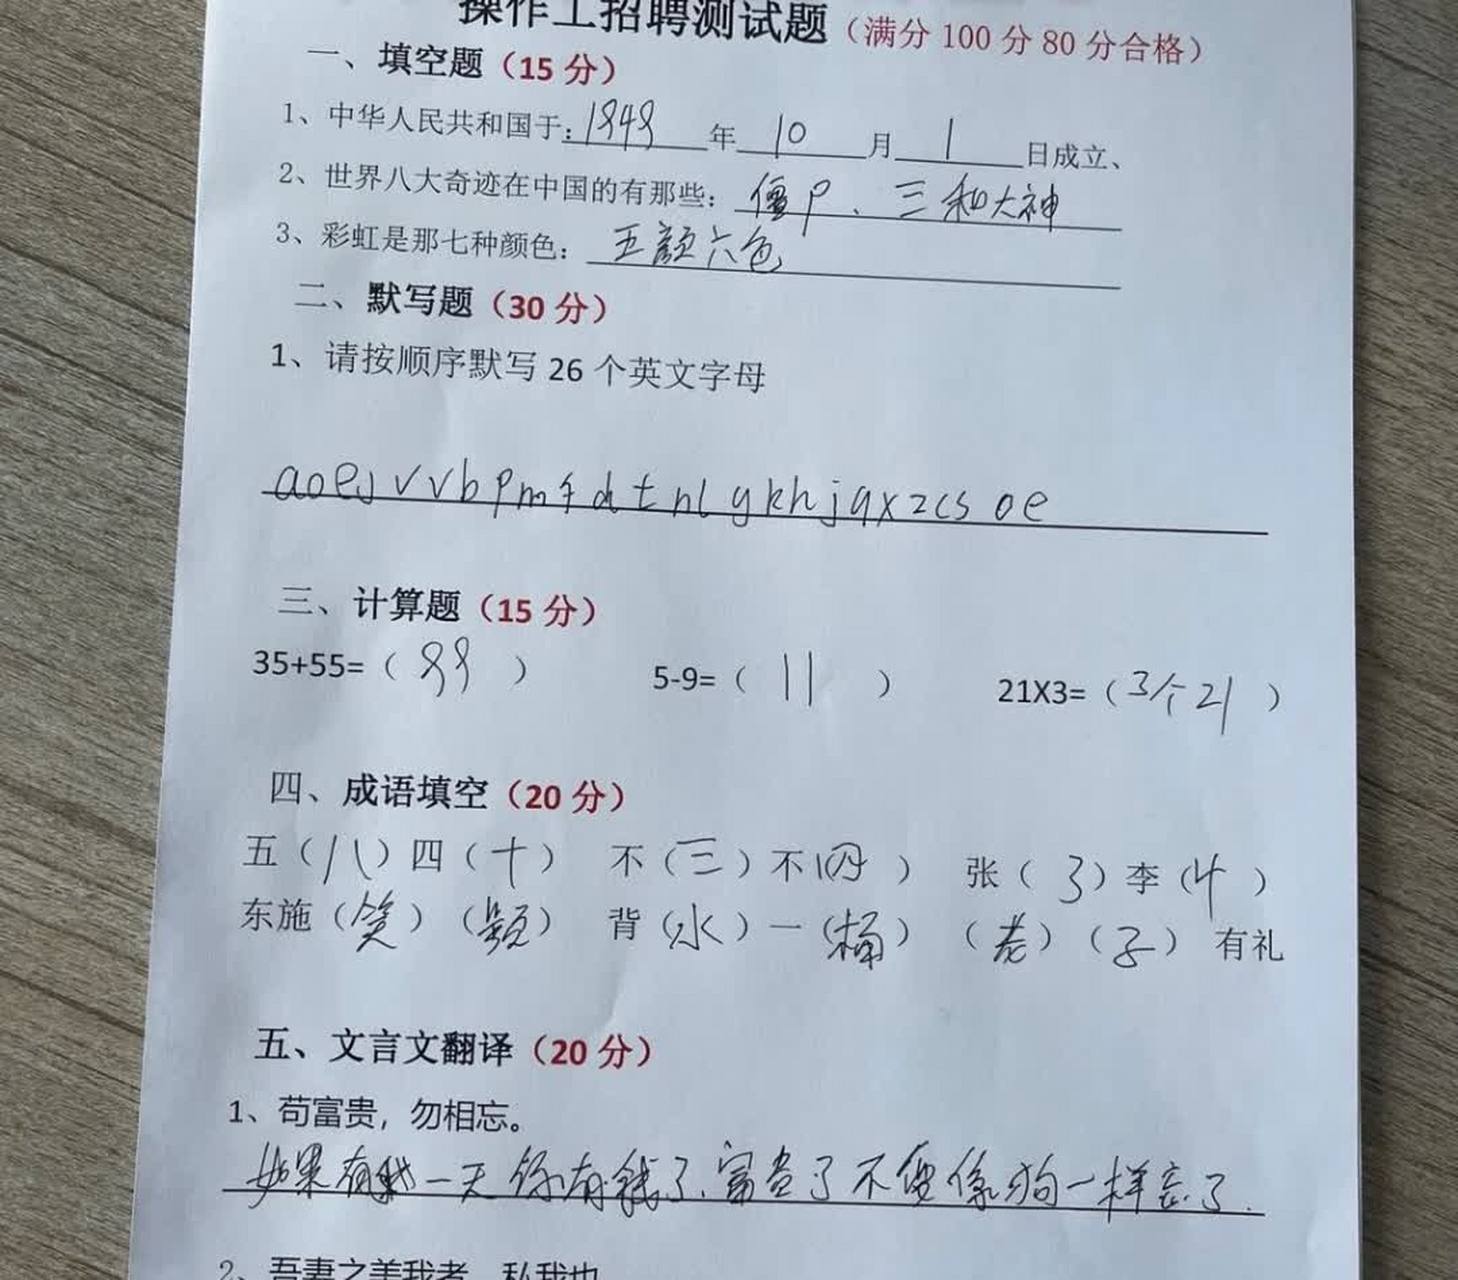 操作工招聘测试题（满分 100 分 80 分合格）
一、填空题（15 分）
1、中华人民共和国于：1949 年 10 月 1 日成立、
2、世界八大奇迹在中国的有那些：僵尸、三和大神
3、彩虹是那七种颜色：五颜六色
二、默写题（30 分）
1、请按顺序默写 26 个英文字母
aoeJvvbpmfdtnlgkhjqxzcs oe
三、计算题（15 分）
35+55=（99） 5-9=（11） 21X3=（3个21）
四、成语填空（20 分）
五（八）四（十） 不（三）不（四） 张（3）李（4）
东施（笑）（颦） 背（水）一（桶） （老）（子）有礼
五、文言文翻译（20 分）
1、苟富贵，勿相忘。
如果有一天你有钱了、富贵了不要像狗一样忘了.
2、吾妻之美我者，私我也